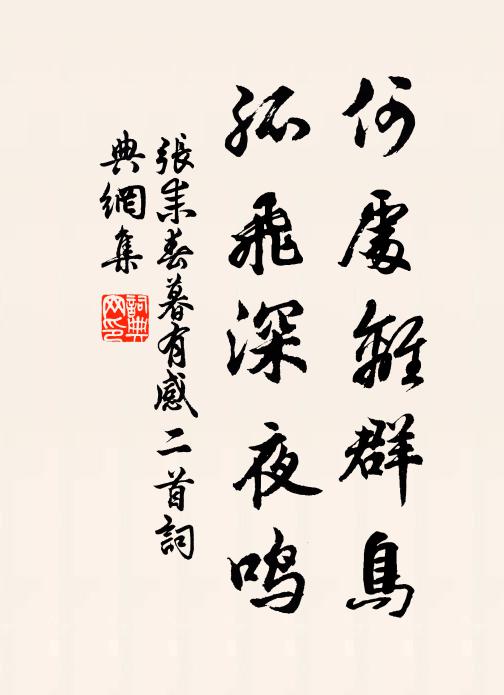 何處離群鳥
孤飛深夜鳴
張耒春暮有感二首詞
典網集
詞典
网印